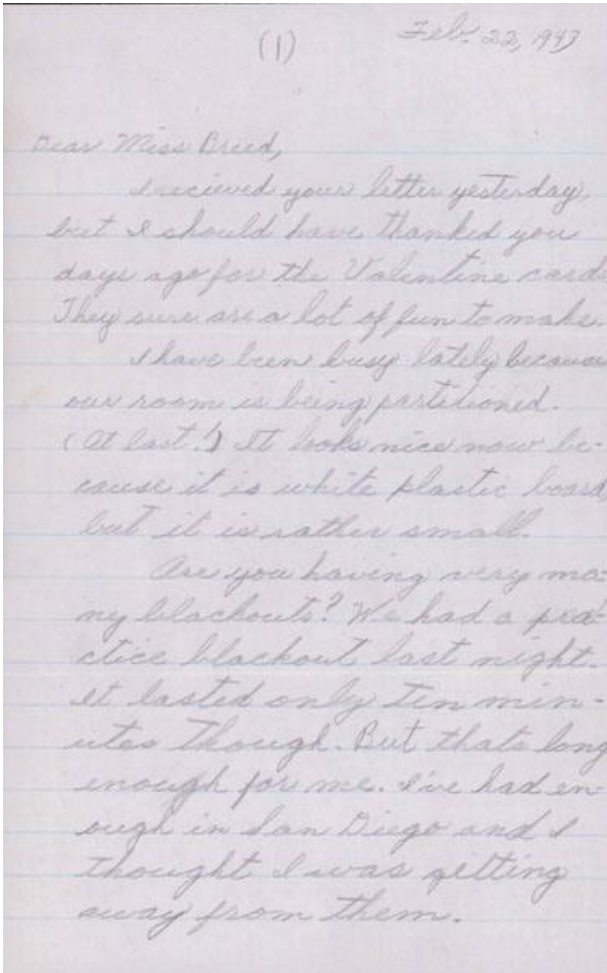 (1)
Feb. 22, 1943
Dear Miss Breed,
I recieved your letter yesterday,
but I should have thanked you
days ago for the Valentine cards.
They sure are a lot of fun to make.
I have been busy lately because
our room is being partitioned.
(At last!) It looks nice now be-
cause it is white plastic board,
but it is rather small.
Are you having very ma-
ny blackouts? We had a pra-
ctice blackout last night.
It lasted only ten min-
utes though. But thats long
enough for me. I've had en-
ough in San Diego and I
thought I was getting
away from them.